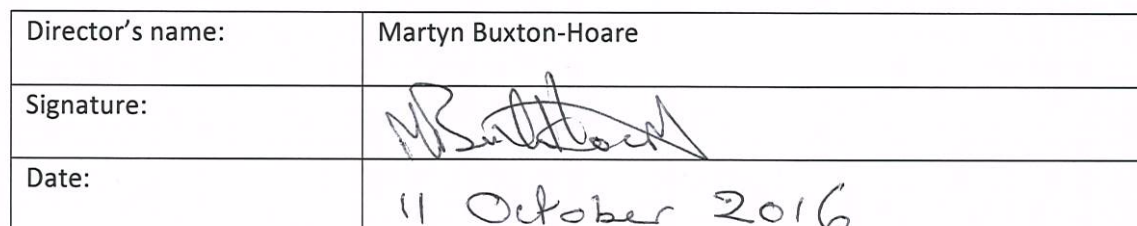 Director's name: Martyn Buxton-Hoare
Signature:
Date: 11 October 2016